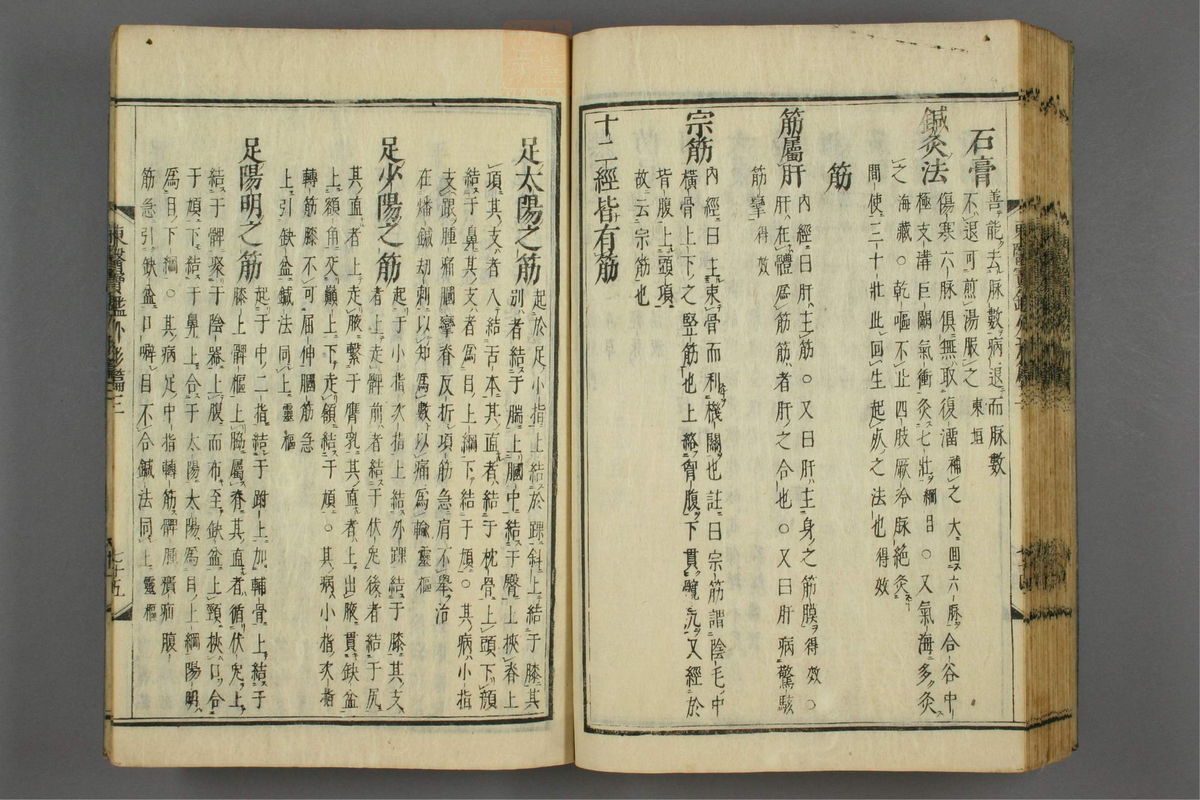 石膏 善能去脉數病退而脉數
不退可煎湯服之 東垣
鍼灸法 傷寒六脉俱無取復溜 補之 大回六脉 合谷中
極支溝巨闕氣衝 灸七壯 綱目 ○又氣海多灸
之 海藏 ○乾嘔不止四肢厥冷脉絶灸
間使三十壯此回生起死之法也 得效
筋
筋屬肝 內經曰肝主筋○又曰肝主身之筋膜 得效 ○
肝在體爲筋筋者肝之合也○又曰肝病驚駭
筋攣 得效
宗筋 內經曰主束骨而利機關也註曰宗筋謂陰毛中
橫骨上下之竪筋也上絡胷腹下貫髖尻又經於
背腹上頭項
故云宗筋也
十二經皆有筋
足太陽之筋 起於足小指上結於踝斜上結于膝其
別者結于腨上膕中結于臀上挾脊上
項其支者入結舌本其直者結于枕骨上頭下顔
結于鼻其支者爲目上綱下結于頄○其病小指
支跟腫痛膕攣脊反折項筋急肩不擧治
在燔鍼劫刺以知爲數以痛爲輸 靈樞
足少陽之筋 起于小指次指上結外踝結于膝其支
者上走髀前者結于伏兎後者結于尻
其直者上走腋繫于膺乳其直者上出腋貫缺盆
上額角交巓上下走頷結于頄○其病小指次指
轉筋膝不可屈伸膕筋急
上引缺盆鍼法同上 靈樞
足陽明之筋 起于中二指結于跗上加輔骨上結于
膝上髀樞上脇屬脊其直者循伏兎上
結于髀聚于陰器上腹而布至缺盆上頸挾口合
于頄下結于鼻上合于太陽太陽爲目上綱陽明
爲目下綱○其病足中指轉筋髀腫㿉疝腹
筋急引缺盆口噼目不合鍼法同上 靈樞